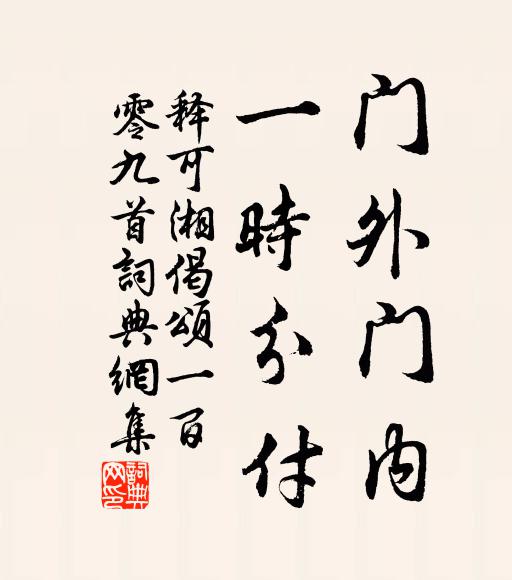 门外门内
一時分付
释可湘偈頌一百
零九首詞典網集
詞典网印